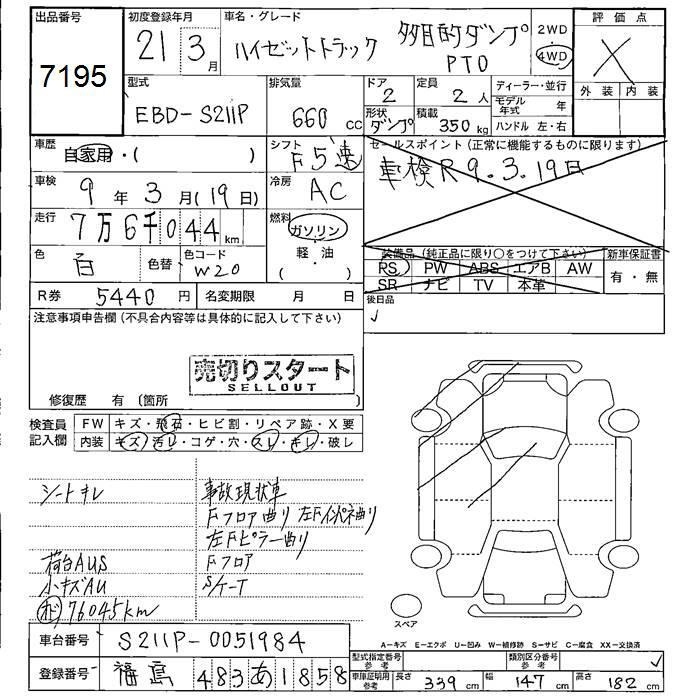 出品番号
7195
初度登録年月
21 3月
車名・グレード
ハイゼットトラック 多目的ダンプ PTO
2WD
4WD
評価点
X
外装 内装
型式
EBD-S211P
排気量
660 CC
ドア
2
定員
2人
形状
ダンプ
積載
350kg
ディーラー・並行
モデル年式 年
ハンドル 左・右
車歴
自家用・( )
シフト
F5速
セールスポイント(正常に機能するものに限ります)
車検R9.3.19日
車検
9年3月(19日)
冷房
AC
走行
7万6千044km
燃料
ガソリン
軽・油
( )
色
白
色替
色コード
W20
装備品(純正品に限り○をつけて下さい)
PS PW ABS エアB AW
SR ナビ TV 本革
新車保証書
有・無
R券 5440円
名変期限 月 日
後日品
注意事項申告欄(不具合内容等は具体的に記入して下さい)
売切りスタート
SELLOUT
修復歴 有(箇所
検査員記入欄
FW キズ・飛石・ヒビ割・リペア跡・X要
内装 キズ・汚レ・コゲ・穴・スレ・キレ・破レ
シートキレ
荷台AUS
小キズAU
76045km
事故現状車
Fフロア曲り 左Fインパネ曲り
左Fピラー曲り
Fフロア
S/ケート
スペア
A−キズ E−エクボ U−凹み W−補修跡 S−サビ C−腐食 XX−交換済
車台番号 S211P-0051984
登録番号 福島 483 あ 1858
型式指定番号 参考
類別区分番号 参考
車庫証明用 参考
長さ 339cm
幅 147cm
高さ 182cm